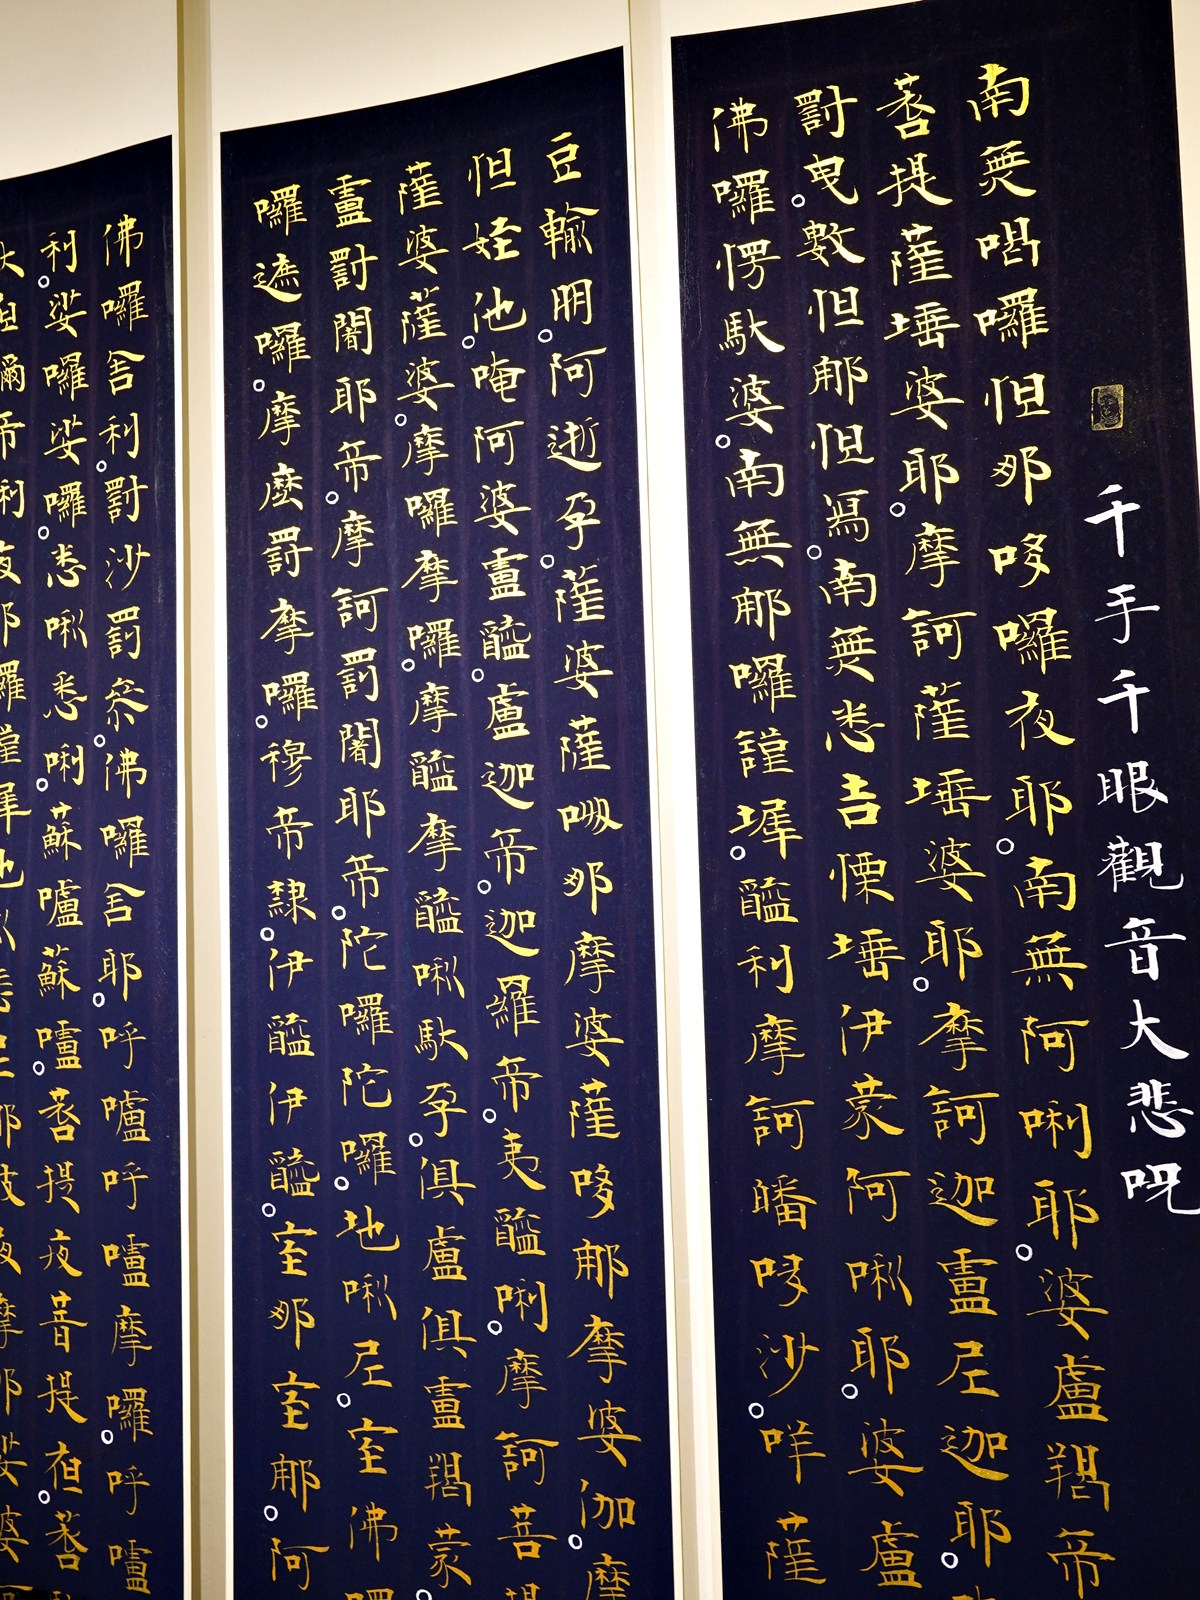 千手千眼觀音大悲呪
南無喝囉怛那哆囉夜耶。南無阿唎耶。婆盧羯帝
菩提薩埵婆耶。摩訶薩埵婆耶。摩訶迦盧尼迦耶。
罰曳。數怛那怛寫。南無悉吉慄埵伊蒙阿唎耶。婆盧
佛囉愣馱婆。南無那囉謹墀。醯利摩訶皤哆沙。咩薩
豆輸朋。阿逝孕。薩婆薩哆那摩婆薩哆那摩婆伽。摩
怛姪他。唵阿婆盧醯。盧迦帝。迦羅帝。夷醯唎。摩訶菩
薩婆薩婆。摩囉摩囉。摩醯摩醯唎馱孕。俱盧俱盧羯蒙。
盧罰闍耶帝。摩訶罰闍耶帝。陀囉陀囉。地唎尼。室佛
囉遮囉。摩麼罰摩囉。穆帝隸。伊醯伊醯。室那室那。阿
佛囉舍利。罰沙罰嵾。佛囉舍耶。呼嚧呼嚧摩囉。呼嚧
利。娑囉娑囉。悉唎悉唎。蘇嚧蘇嚧。菩提夜菩提夜。菩